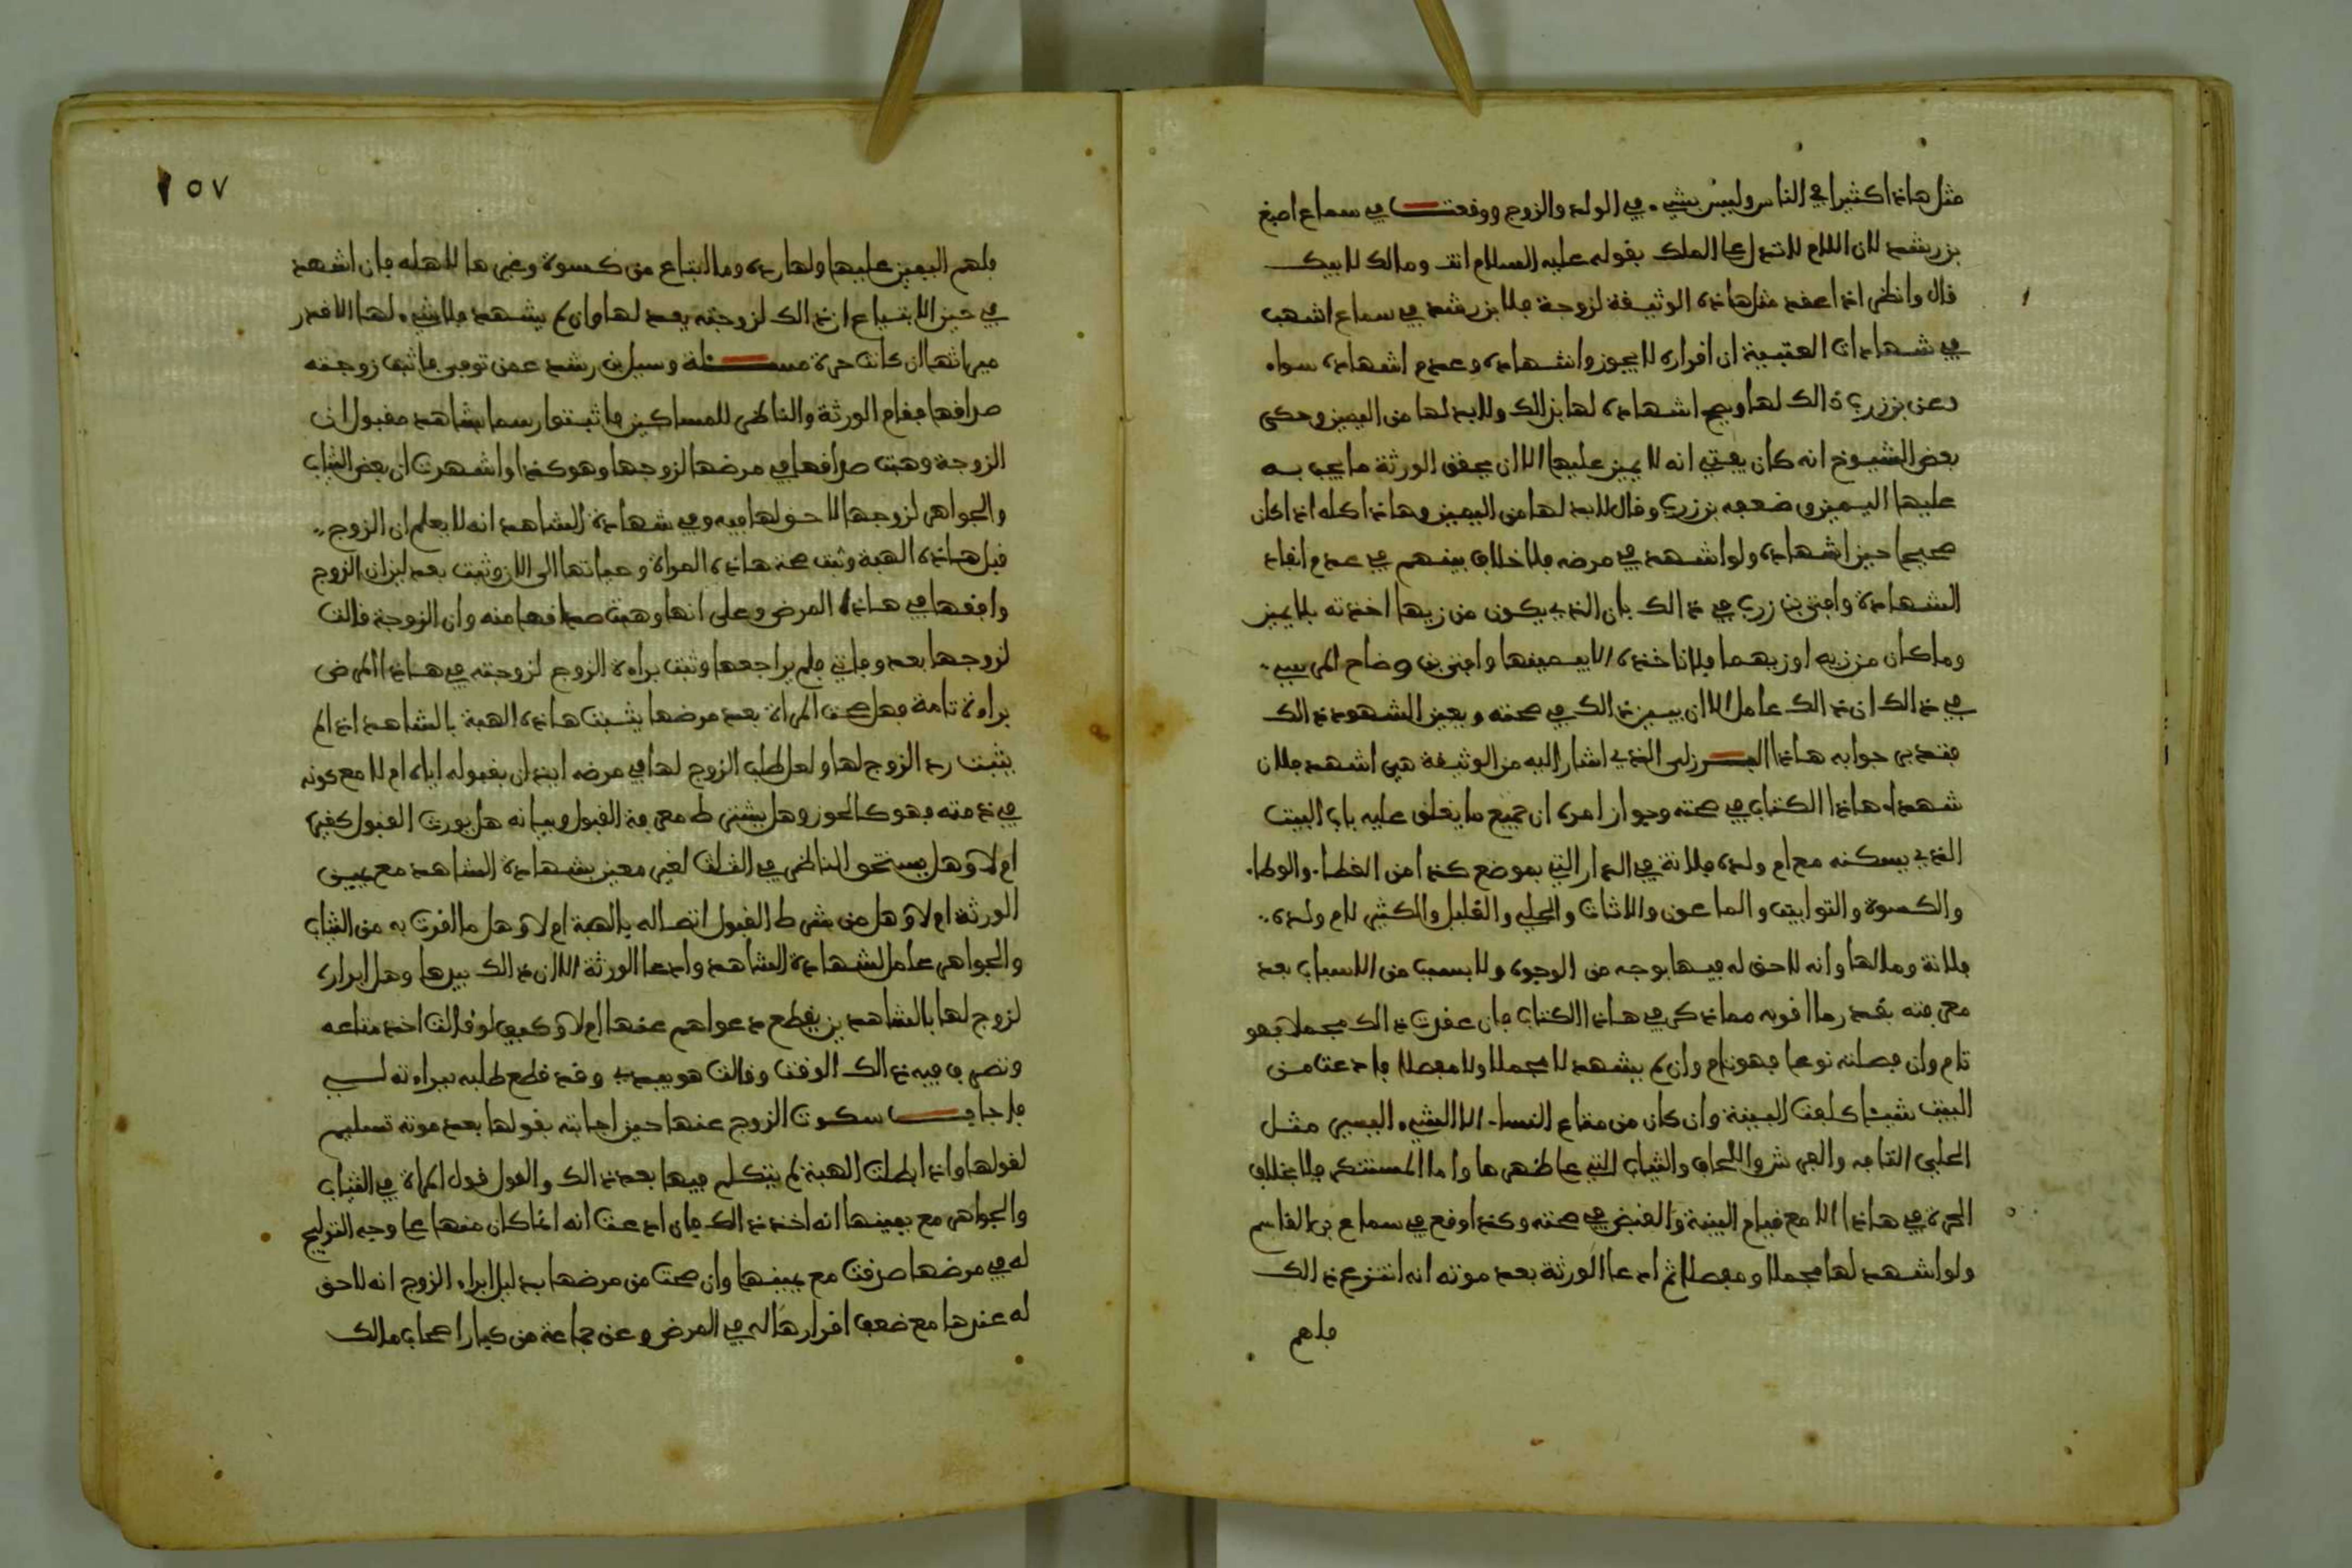 مثل هاذا كثيرا في الناس وليس بشيء في الولد والزوج ووقعت في سماع اصبغ
بن رشد لان اللام لا تدل على الملك بقوله عليه السلام انت ومالك لابيك
قال وانظر اذا عقد مثل هاذه الوثيقة لزوجة فلابن رشد في سماع اشهب
في شهادات العتبية ان اقراره لا يجوز واشهاده وعدم اشهاده سواء
وعن بن زرب ذالك لها ويصح اشهاده لها بذلك ولا بد لها من اليمين وحكى
بعض الشيوخ انه كان يفتي انه لا يمين عليها الا ان يحقق الورثة ما يجب به
عليها اليمين وضعفه بن زرب وقال لا بد لها من اليمين وهاذا كله اذا كان
صحيحا حين اشهاده ولو اشهد في مرضه فلا خلاف بينهم في عدم انفاذ
الشهادة وافتى بن زرب في ذالك بان الذي يكون من زيها اخذته بلا يمين
وما كان من زيه او زيهما فلا تاخذه الا بيمينها وافتى بن وضاح المرسي
في ذالك ان ذالك عامل الا ان يبين ذالك في صحته ويعين الشهود ذالك
فتدبر جوابه هاذا البرزلي الذي اشار اليه من الوثيقة هي اشهد فلان
شهداء هاذا الكتاب في صحته وجواز امره ان جميع ما يغلق عليه باب البيت
الذي يسكنه مع ام ولده فلانة في الدار التي بموضع كذا من الغطاء والوطاء
والكسوة والتوابيت والماعون والاثاث والحلي والقليل والكثير لام ولده
فلانة ومالها وانه لا حق له فيها بوجه من الوجوه ولا بسبب من الاسباب بعد
معرفته بقدر ما اقر به مما ذكر في هاذا الكتاب فان عقدت ذالك مجملا فهو
تام وان فصلته نوعا فهو تام وان لم يشهد لا مجملا ولا مفصلا فادعت من
البيت شيئا كلفت البينة وان كان من متاع النساء الا الشيء اليسير مثل
الحلي التافه والفرش واللحاف والثياب التي على ظهرها واما المستنكر فلا بخلاف
الحرة في هاذا الا مع قيام البينة والقبض في صحته وكذا وقع في سماع بن القاسم
ولو اشهد لها مجملا ومفصلا ثم ادعا الورثة بعد موته انه انتزع ذالك
فلهم
١٥٧
فلهم اليمين عليها ولها رده وما ابتاع من كسوة وغيرها لاهله فان اشهد
في حين الابتياع ان ذالك لزوجته بعد لها وان لم يشهد فلا شيء لها الا قدر
ميراثها ان كانت حرة مسئلة وسيل بن رشد عمن توفي فاثبت زوجته
صداقها فقام الورثة والناظر للمساكين فاثبتوا رسما بشاهد مقبول ان
الزوجة وهبت صداقها في مرضها لزوجها وهو كذا واشهدت ان بعض الثياب
والجواهر لزوجها لا حق لها فيه وفي شهادة الشاهد انه لا يعلم ان الزوج
قبل هاذه الهبة وثبت صحة هاذه المراة وحياتها الى الان وثبت بعدلين ان الزوج
واقفها في هاذا المرض وعلى انها وهبت صداقها منه وان الزوجة قالت
لزوجها بعد وفاتي فلم يراجعها وثبت براءة الزوج لزوجته في هاذا المرض
براءة تامة فهل صحت المراة بعد مرضها يثبت هاذه الهبة بالشاهد اذا لم
يثبت رد الزوج لها ولعل طلب الزوج لها في مرضه ايذان بقبوله اياه ام لا مع كونه
في ذمته فهو كالحوز وهل يشترط معرفة القبول وبيانه هل يورث القبول كغيره
ام لا وهل يستحق الناظر في الثلث لغير معين بشهادة الشاهد مع يمين
الورثة ام لا وهل من شرط القبول اتصاله بالهبة ام لا وهل ما اقرت به من الثياب
والجواهر عامل لشهادة الشاهد وادعا الورثة الا ان ذالك بيدها وهل ابراء
لزوج لها بالشاهدين يقطع دعواهم عنها ام لا وكيف لو قالت اخذ متاعه
وتصرف فيه ذالك الوقت وقالت هو بيدي وقد قطع طلبه ببراءته لي
فاجاب سكوت الزوج عنها حين اجابته بقولها بعد موته تسليم
لقولها واذا بطلت الهبة لم يتكلم فيها بعد ذالك والقول قول المراة في الثياب
والجواهر مع يمينها انه اخذ ذالك فان ادعت انه انما كان منها على وجه التوليج
له في مرضها صدقت مع يمينها وان صحت من مرضها بدليل ابراء الزوج انه لا حق
له عندها مع ضعف اقرارها له في المرض وعن جماعة من كبار اصحاب مالك